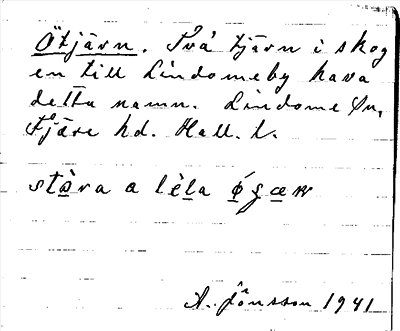 Ötjärn. Två tjärn i skog
en till Lindomeby hava
detta namn. Lindome sn,
Fjäre hd. Hall. l.
stòra a lèla
A. Jönsson 1941